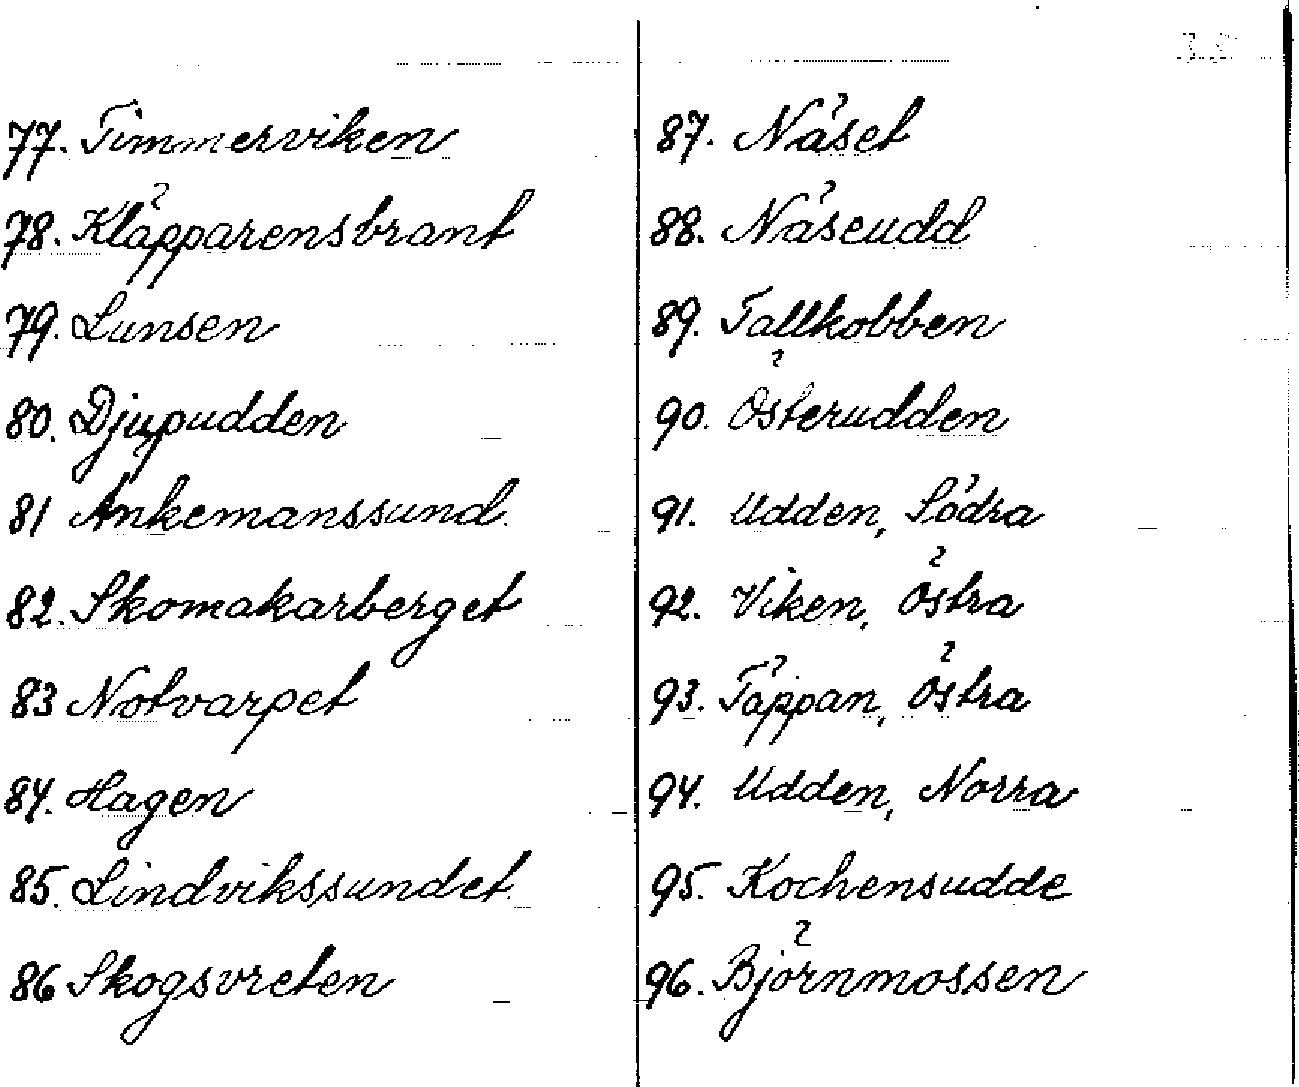 35
77. Timmerviken
78. Kläpparensbrant
79. Lunsen
80. Djupudden
81 Ankemanssund.
82. Skomakarberget
83 Notvarpet
84. Hagen
85. Lindvikssundet.
86 Skogsvreten
87. Näset
88. Näseudd
89. Tallkobben
90. Österudden
91. Udden, Södra
92. Viken, Östra
93. Täppan, Östra
94. Udden, Norra
95. Kochensudde
96. Björnmossen